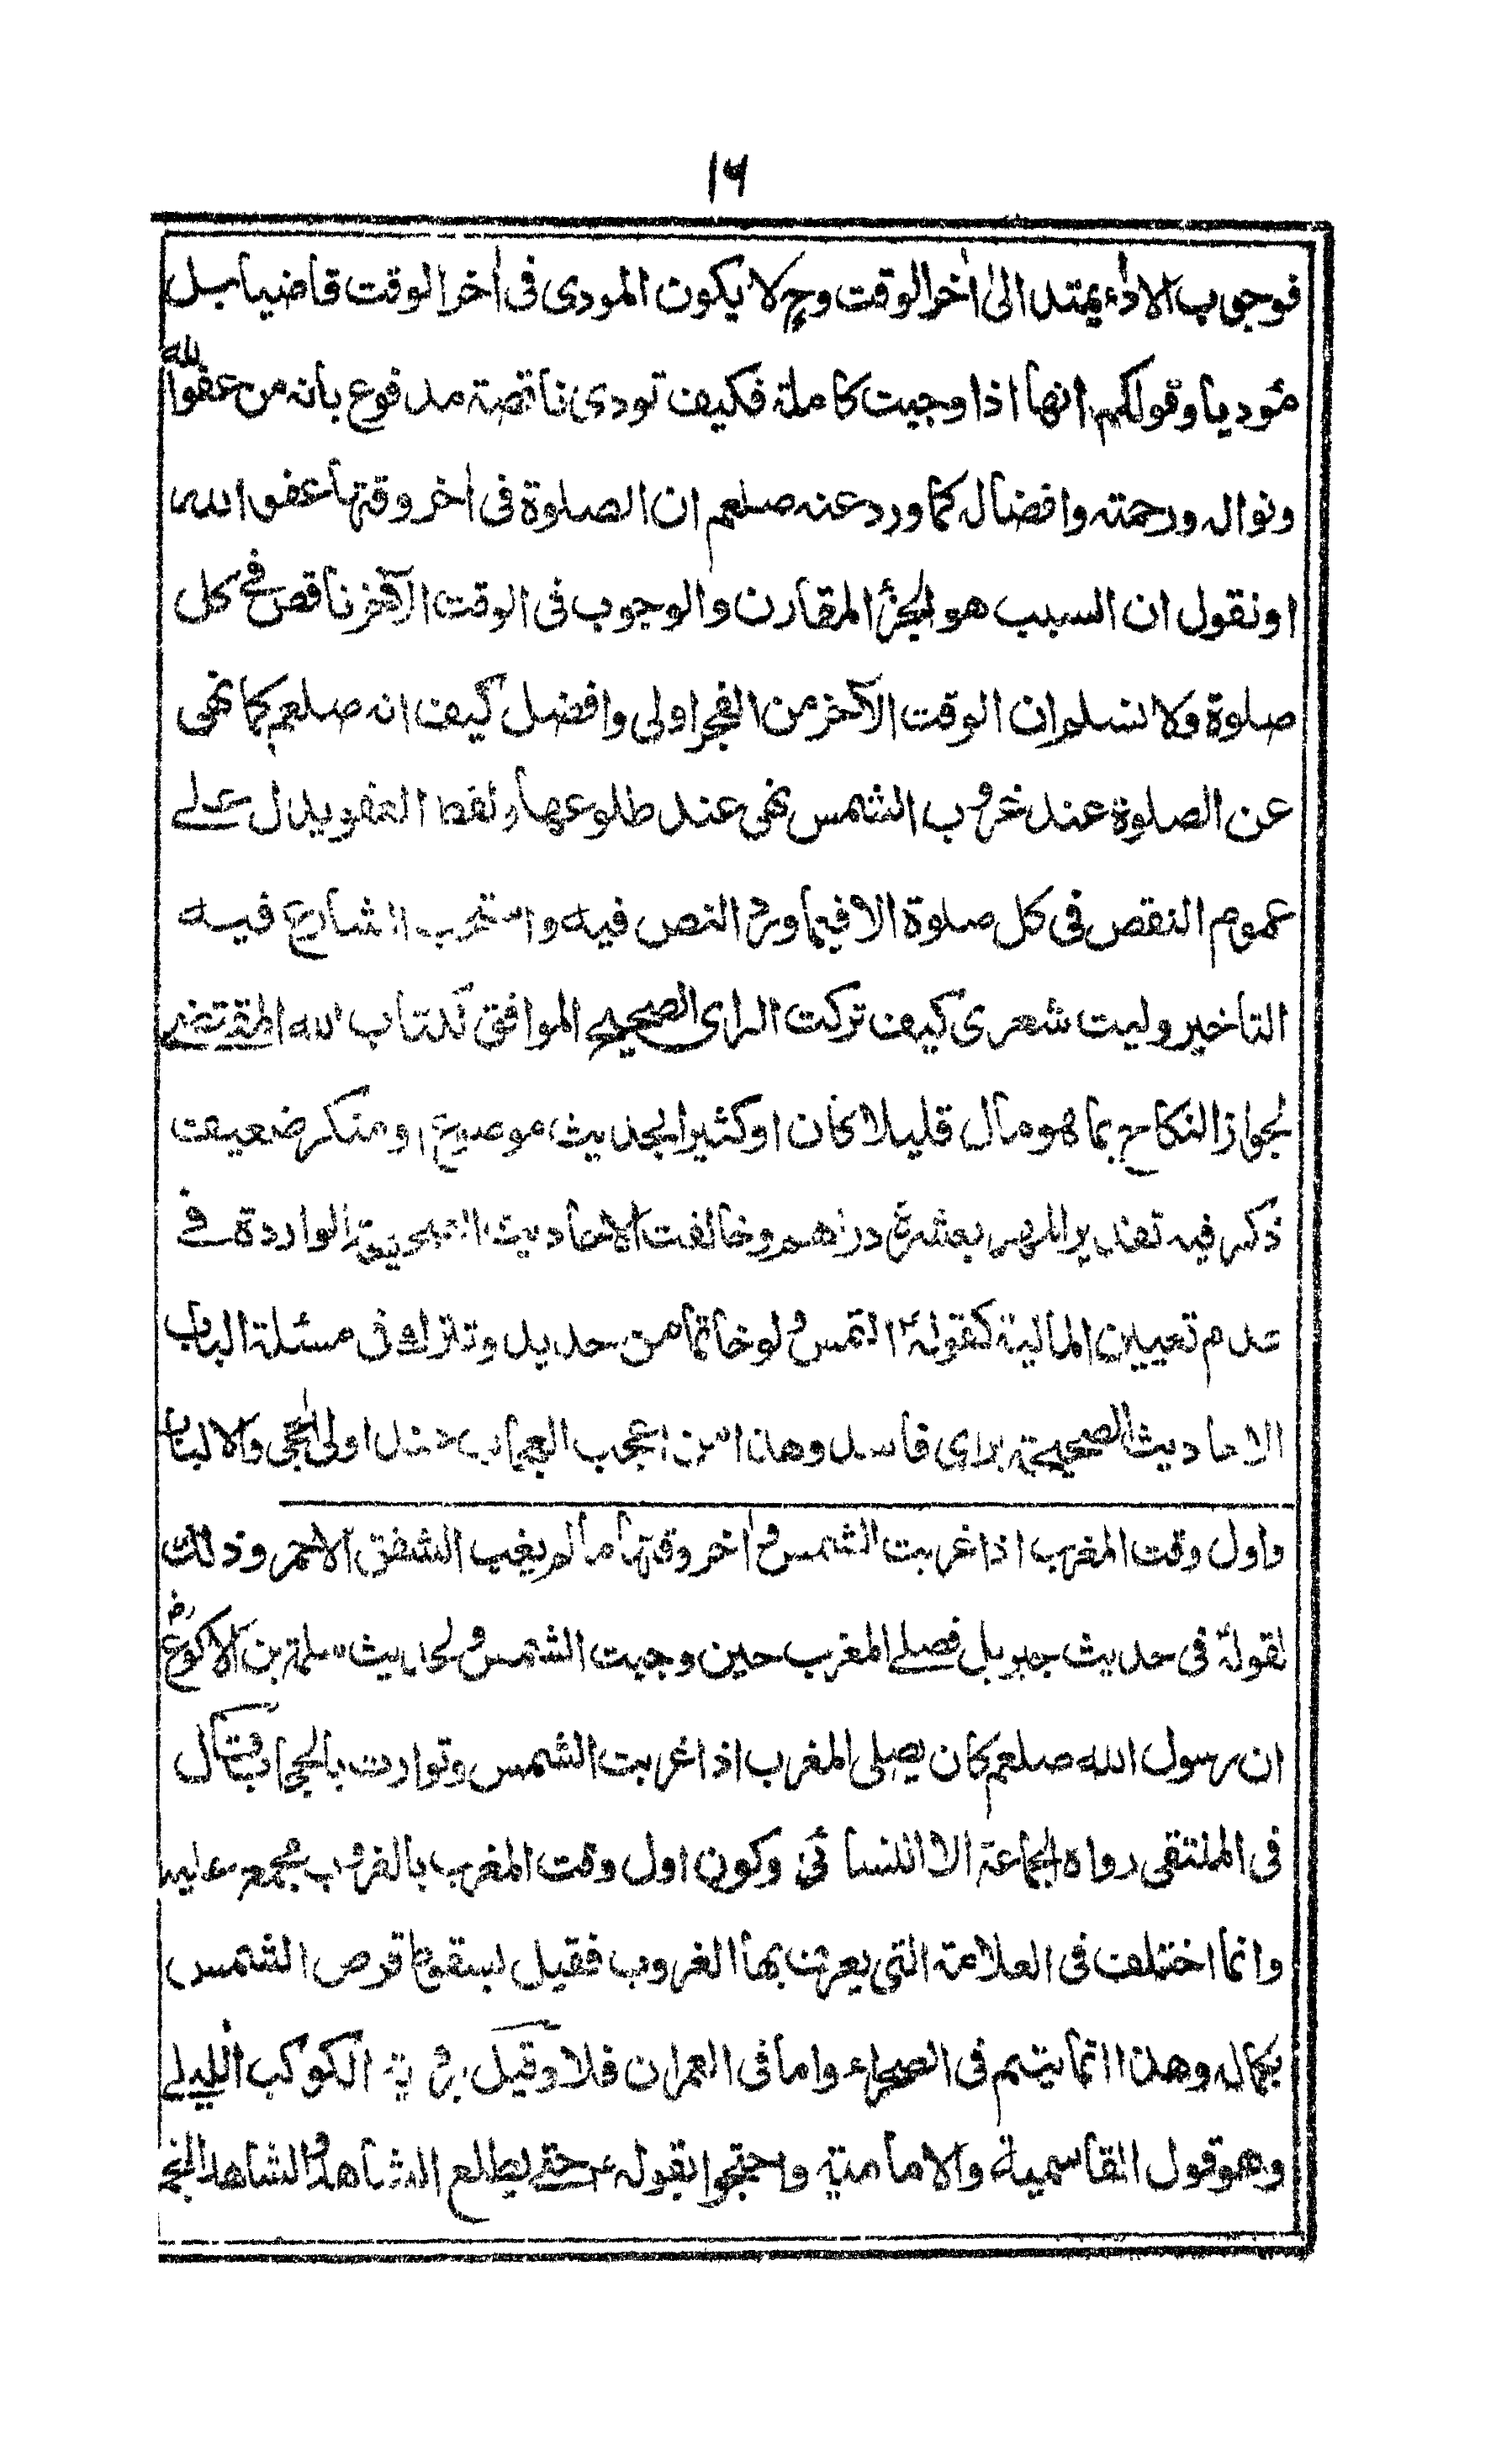 ١٦
فوجوب الاداء يمتد الىٰ اٰخر الوقت وح لا يكون المودى فى اٰخر الوقت قاضيا بل
مُوديا وقولكم انها اذا وجبت كاملة فكيف تودى ناقصة مدفوع بانه من عفو الله
ونواله ورحمته وافضاله كما ورد عنه صلعم ان الصلوة فى اٰخر وقتها عفو الله
او نقول ان السبب هو الجزأ المقارن والوجوب فى الوقت الآخر ناقص فے كل
صلوة ولا نسلم ان الوقت الآخر من الفجر اولى وافضل كيف انه صلعم كما نهى
عن الصلوة عند غروب الشمس نهى عند طلوعها ولفظ العفو يدل علے
عموم النقص فى كل صلوة الا فيما ورد النص فيه واستحب الشارع فيه
التاخير وليت شعرى كيف تركت الراى الصحيح الموافق لكتاب الله المقتضے
لجواز النكاح بما هو مال قليلا كان او كثيرا بحديث موضوع او منكر ضعيف
ذكر فيه تقدير المهر بعشرة دراهم وخالفت الاحاديث الصحيحة الواردة فے
عدم تعيين المالية كقوله ؑ التمس ولو خاتما من حديد وتترك فى مسئلة الباب
الاحاديث الصحيحة براى فاسد وهذا من اعجب العجاب عند اولى الحجى والالباب
واول وقت المغرب اذا غربت الشمس واٰخر وقتها ما لم يغب الشفق الاحمر وذلك
لقوله ؑ فى حديث جبريل فصلے المغرب حين وجبت الشمس ولحديث سلمة بن الاكوع ؓ
ان رسول الله صلعم كان يصلى المغرب اذا غربت الشمس وتوارت بالحجاب قال
فى الملتقى رواه الجماعة الا النسائى وكون اول وقت المغرب بالغروب مجمع عليه
وانما اختلف فى العلامة التى يعرف بها الغروب فقيل بسقوط قرص الشمس
بكماله وهذا انما يتم فى الصحراء واما فى العمران فلا وقيل برؤية الكوكب الليلے
وهو قول القاسمية والامامية واحتجوا بقوله ؑ حتے يطلع الشاهد والشاهد النجم